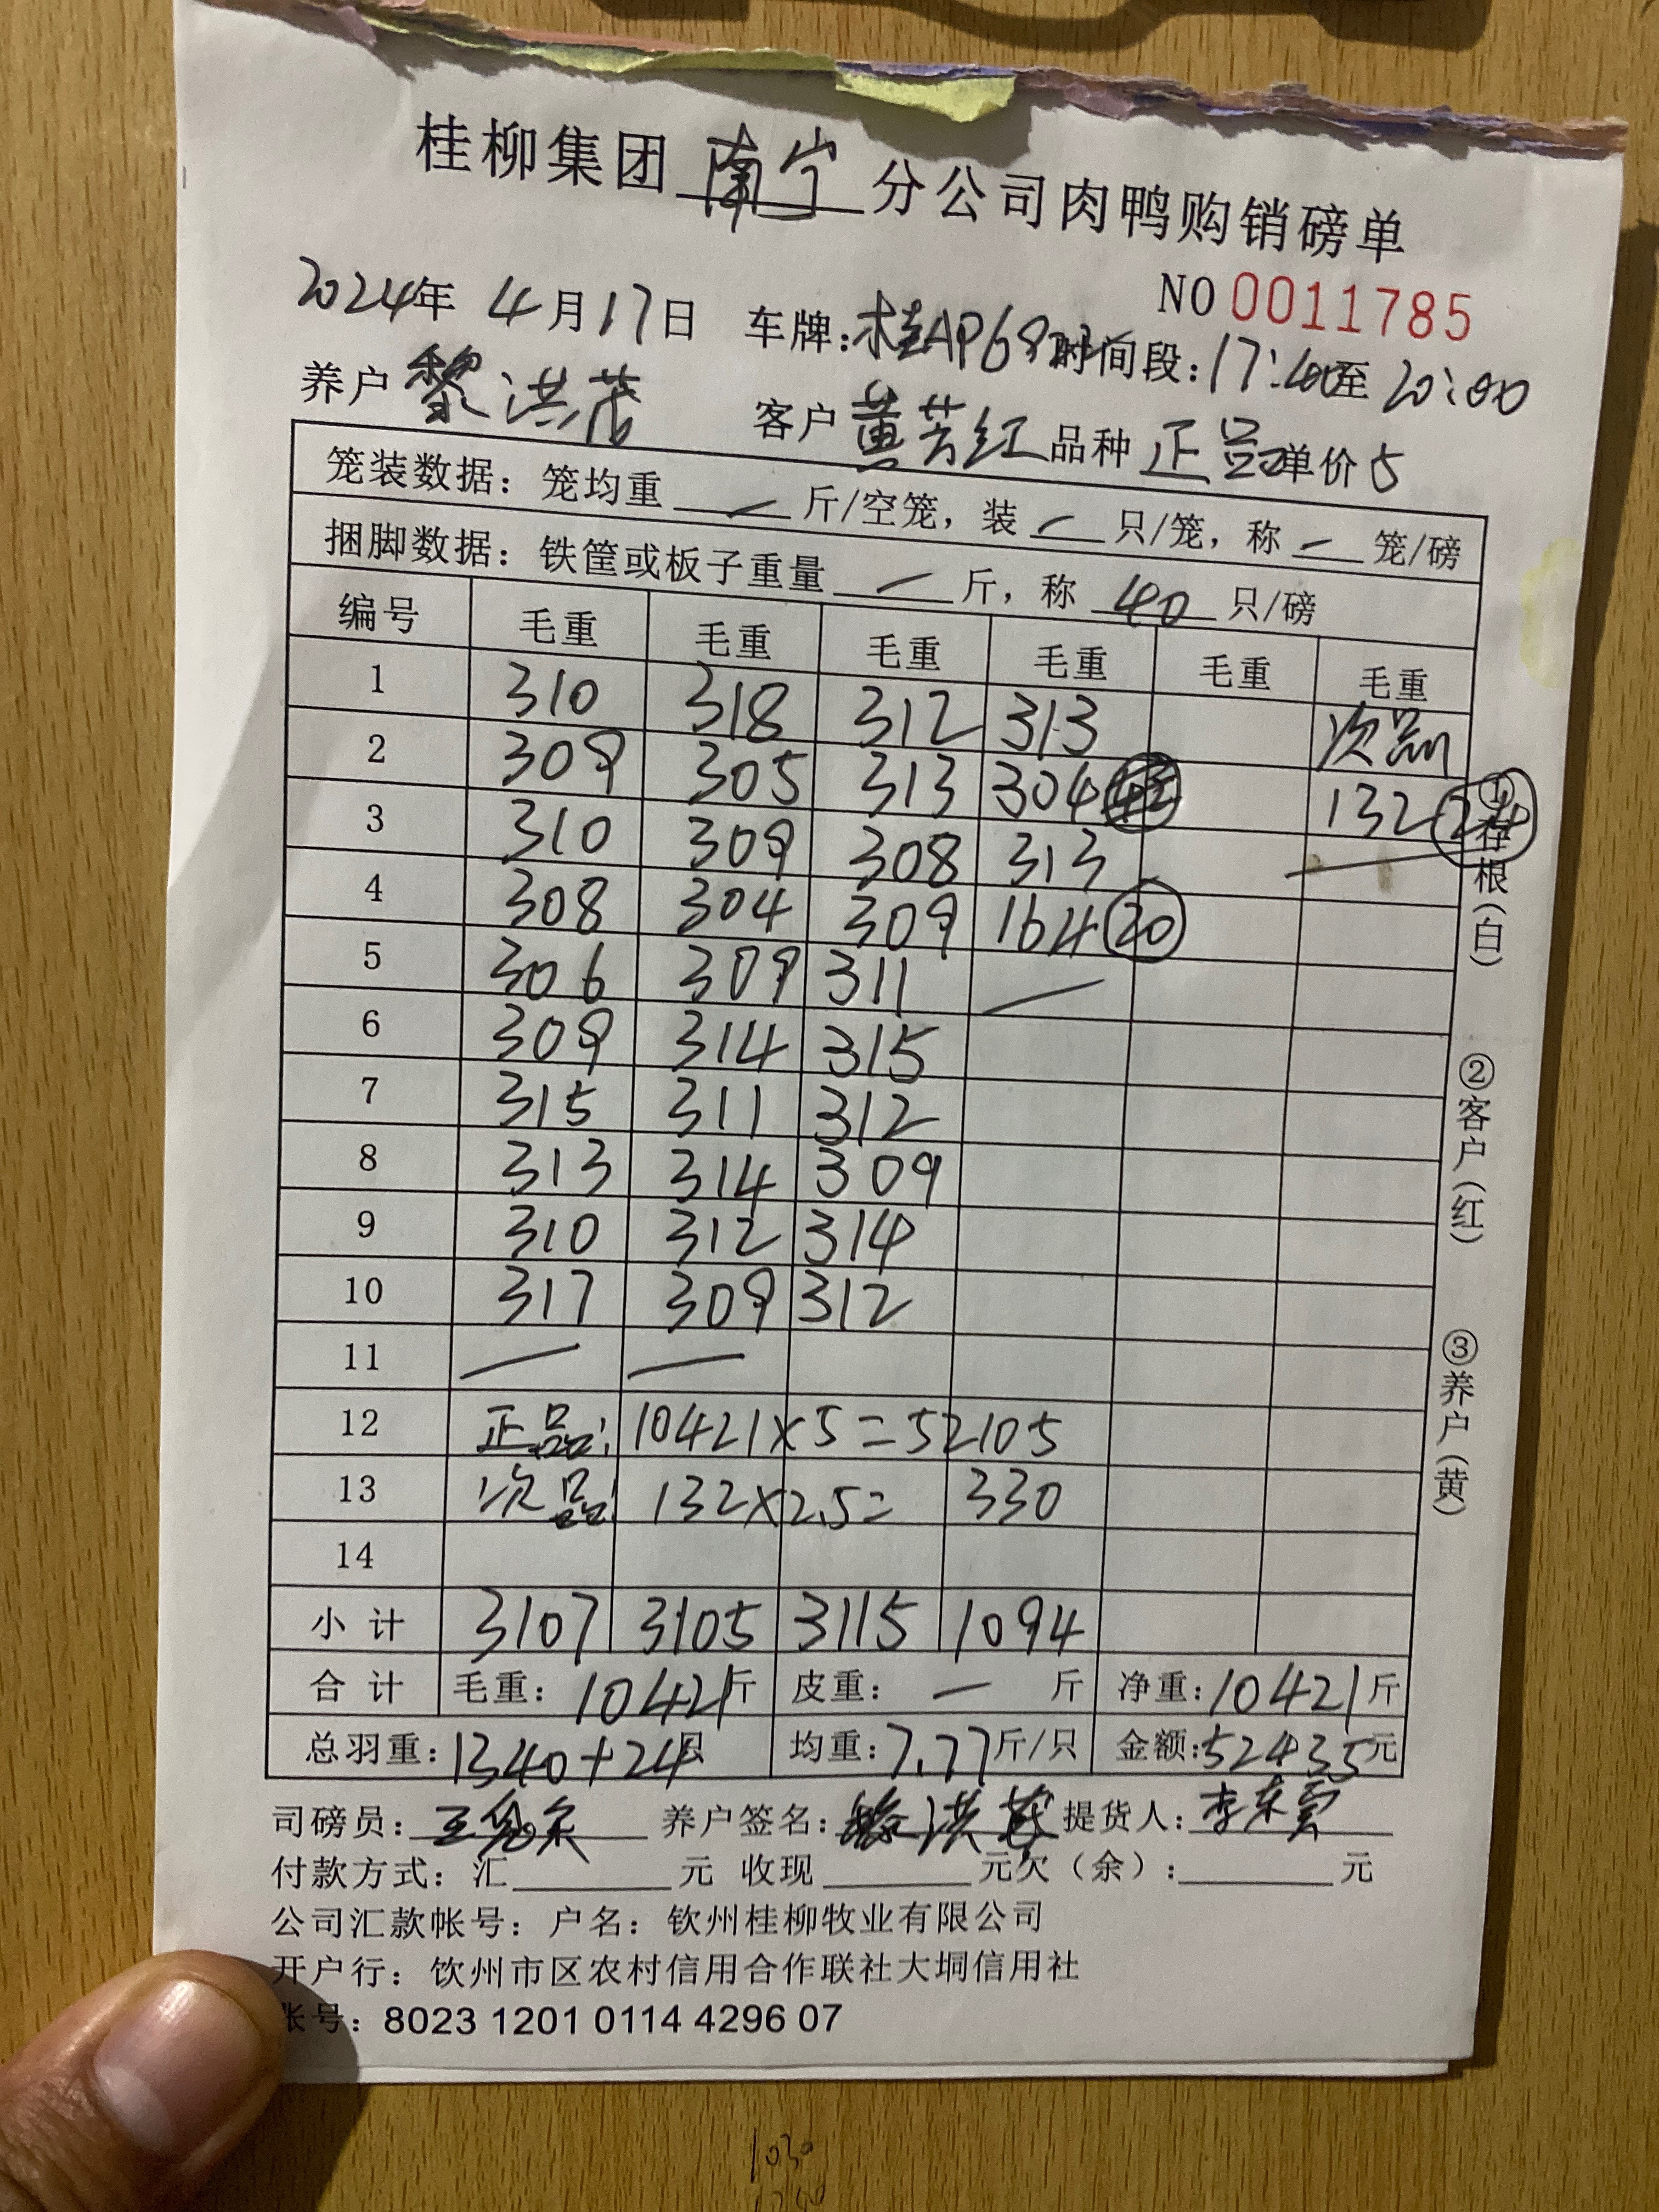 桂柳集团 南宁 分公司肉鸭购销磅单
NO 0011785
2024年 4月17日 车牌:桂AP68 时间段:17:40至20:00
养户 黎洪茂 客户 黄芳红 品种 正品 单价 5
笼装数据：笼均重 — 斤/空笼，装 — 只/笼，称 — 笼/磅
捆脚数据：铁筐或板子重量 — 斤，称 40 只/磅
编号 毛重 毛重 毛重 毛重 毛重 毛重
1 310 318 312 313 次品
2 309 305 313 304 132 24
3 310 309 308 313 —
4 308 304 309 164 20
5 306 309 311 —
6 309 314 315
7 315 311 312
8 313 314 309
9 310 312 314
10 317 309 312
11 — —
12 正品: 10421×5=52105
13 次品: 132×2.5= 330
14
小计 3107 3105 3115 1094
合计 毛重: 10421斤 皮重: — 斤 净重:10421斤
总羽重:1340+24只 均重:7.77斤/只 金额:52435元
司磅员: 养户签名: 黎洪茂 提货人: 李东云
付款方式: 汇 元 收现 元欠（余）: 元
公司汇款帐号: 户名: 钦州桂柳牧业有限公司
开户行: 钦州市区农村信用合作联社大垌信用社
帐号: 8023 1201 0114 4296 07
①存根(白)
②客户(红)
③养户(黄)
1030